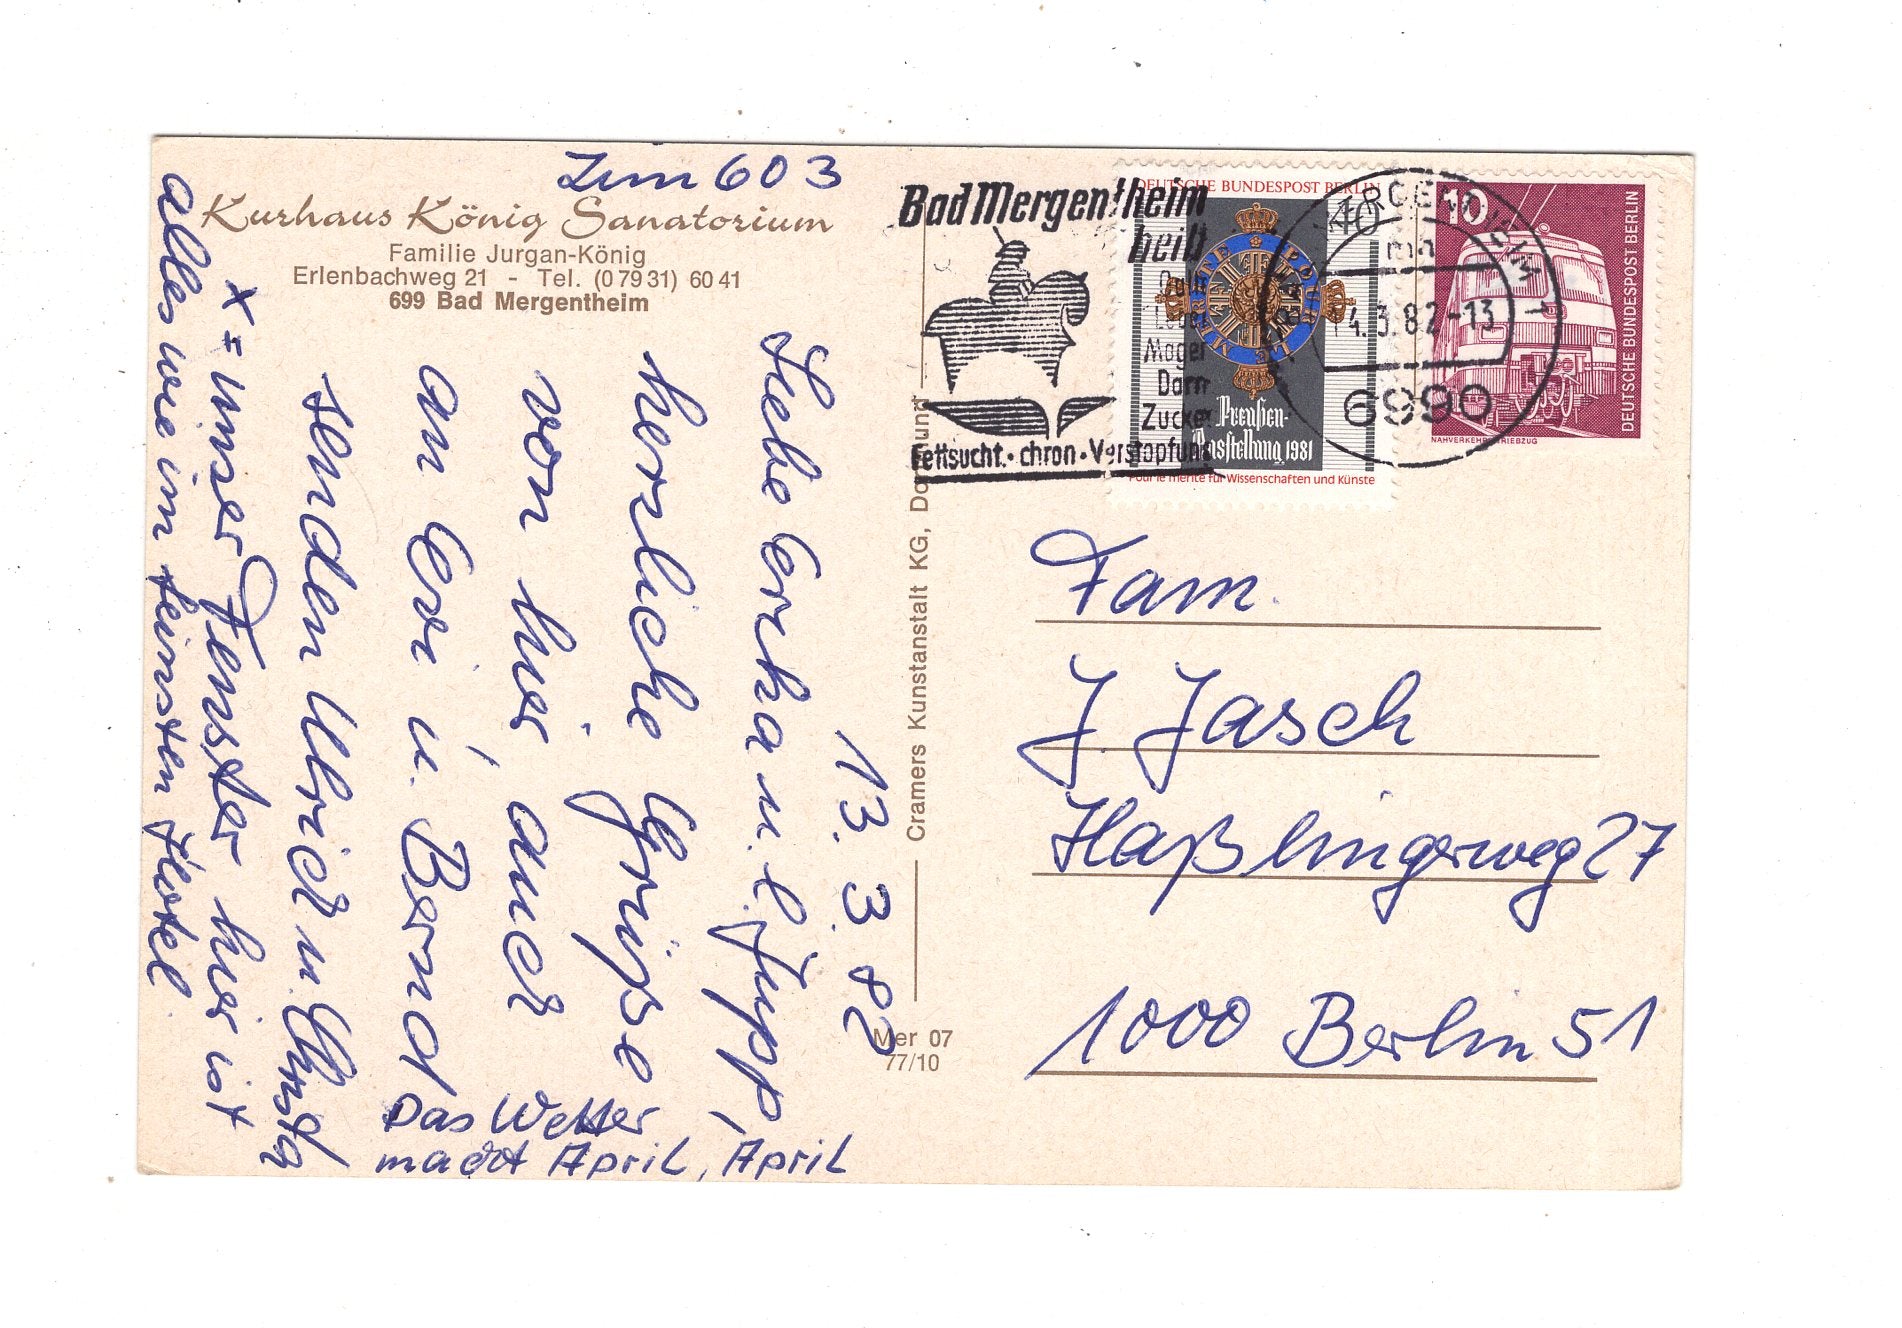 Zim 603
Kurhaus König Sanatorium
Familie Jurgan-König
Erlenbachweg 21 - Tel. (0 79 31) 60 41
699 Bad Mergentheim
13. 3. 82
Liebe Erika u. l. Jupp,
herzliche Grüße
von hier, auch
an Evi u. Bernd
senden Ulrich u. Christa
x = unser Fenster hier ist
alles wie im feinsten Hotel.
Das Wetter
macht April, April
Cramers Kunstanstalt KG, Dortmund
Mer 07
77/10
Bad Mergentheim
heilt
Galle
Leber
Magen
Darm
Zucker
Fettsucht · chron · Verstopfung
DEUTSCHE BUNDESPOST BERLIN
40
MERITE POUR LE
Preußen-
Ausstellung 1981
Pour le mérite für Wissenschaften und Künste
MERGENTHEIM 1
ma
14.3.82-13
6990
10
DEUTSCHE BUNDESPOST BERLIN
NAHVERKEHRS-TRIEBZUG
Fam.
J Jasch
Haßlingerweg 27
1000 Berlin 51